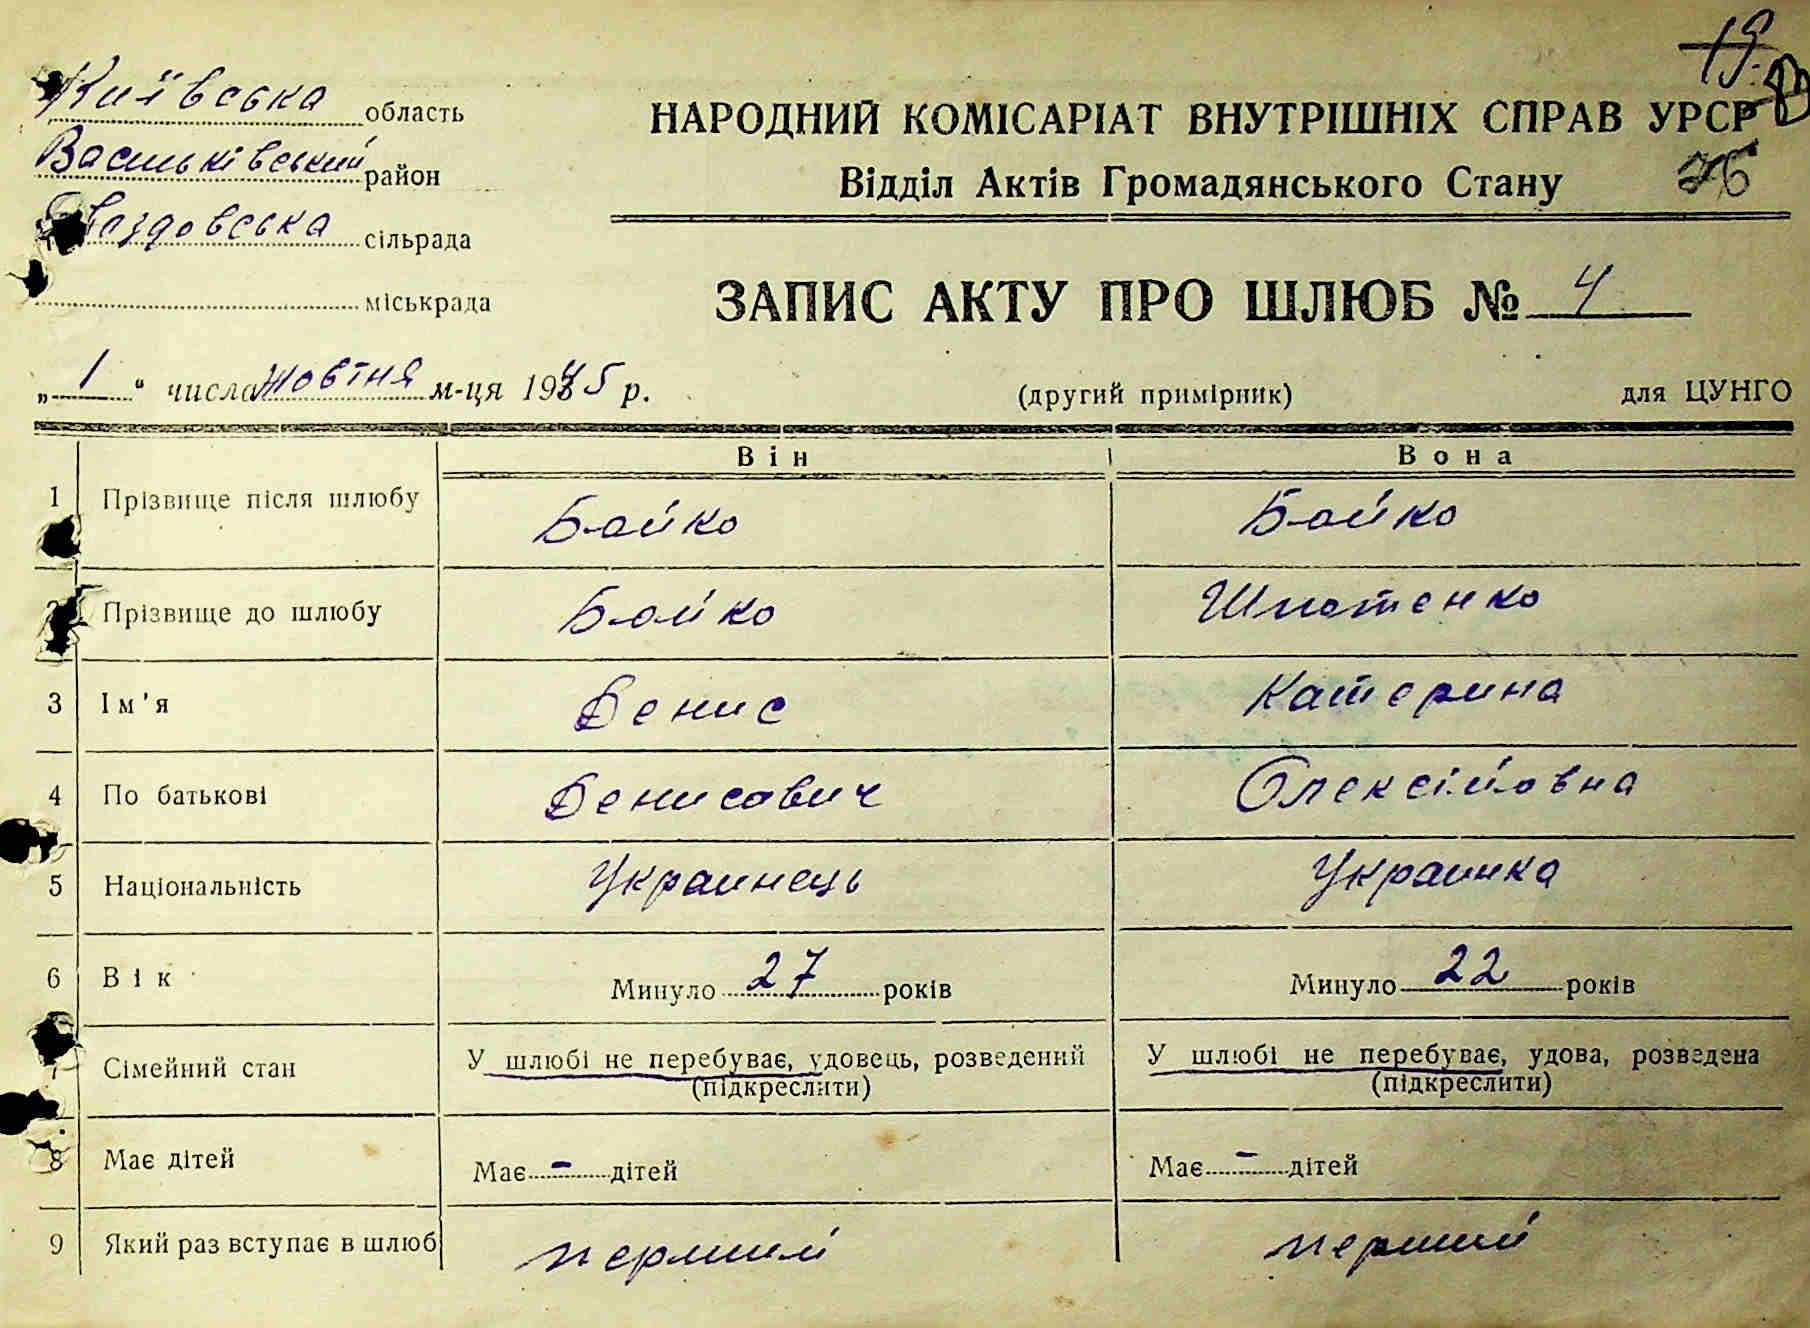 19.
Київська область
НАРОДНИЙ КОМІСАРІАТ ВНУТРІШНІХ СПРАВ УРСР
Васильківський район
Відділ Актів Громадянського Стану
сільрада
міськрада
ЗАПИС АКТУ ПРО ШЛЮБ № 4
„ 1 “ числа жовтня м-ця 1945 р.
(другий примірник)
для ЦУНГО
Він Вона
1 Прізвище після шлюбу Бойко Бойко
2 Прізвище до шлюбу Бойко
3 Ім'я Денис Катерина
4 По батькові Денисович Олексійовна
5 Національність Украинець Украинка
6 Вік Минуло 27 років Минуло 22 років
7 Сімейний стан У шлюбі не перебуває, удовець, розведений У шлюбі не перебуває, удова, розведена
(підкреслити) (підкреслити)
8 Має дітей Має - дітей Має - дітей
9 Який раз вступає в шлюб перший перший